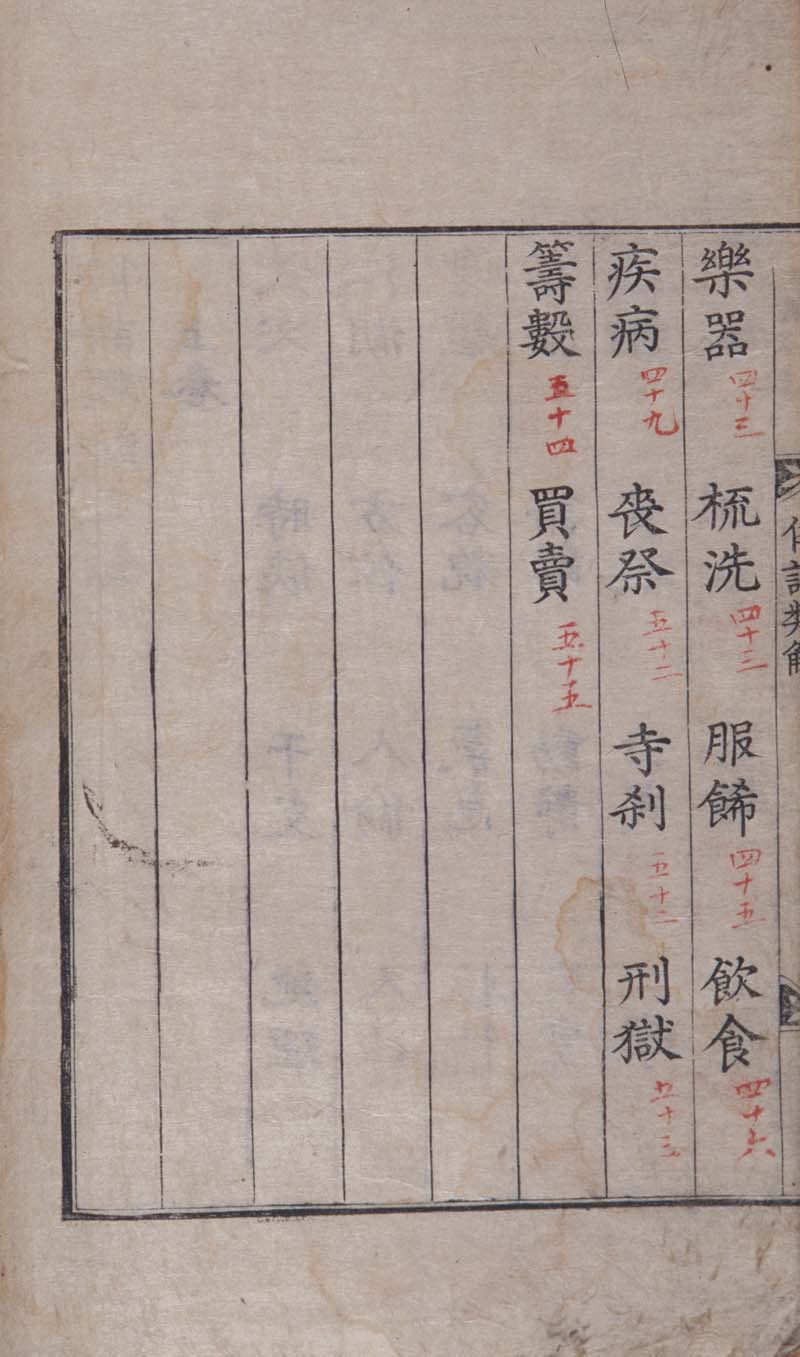 樂器 四十三 梳洗 四十三 服餙 四十五 飮食 四十六
疾病 四十九 喪祭 五十二 寺刹 五十二 刑獄 五十三
籌數 五十四 買賣 五十五